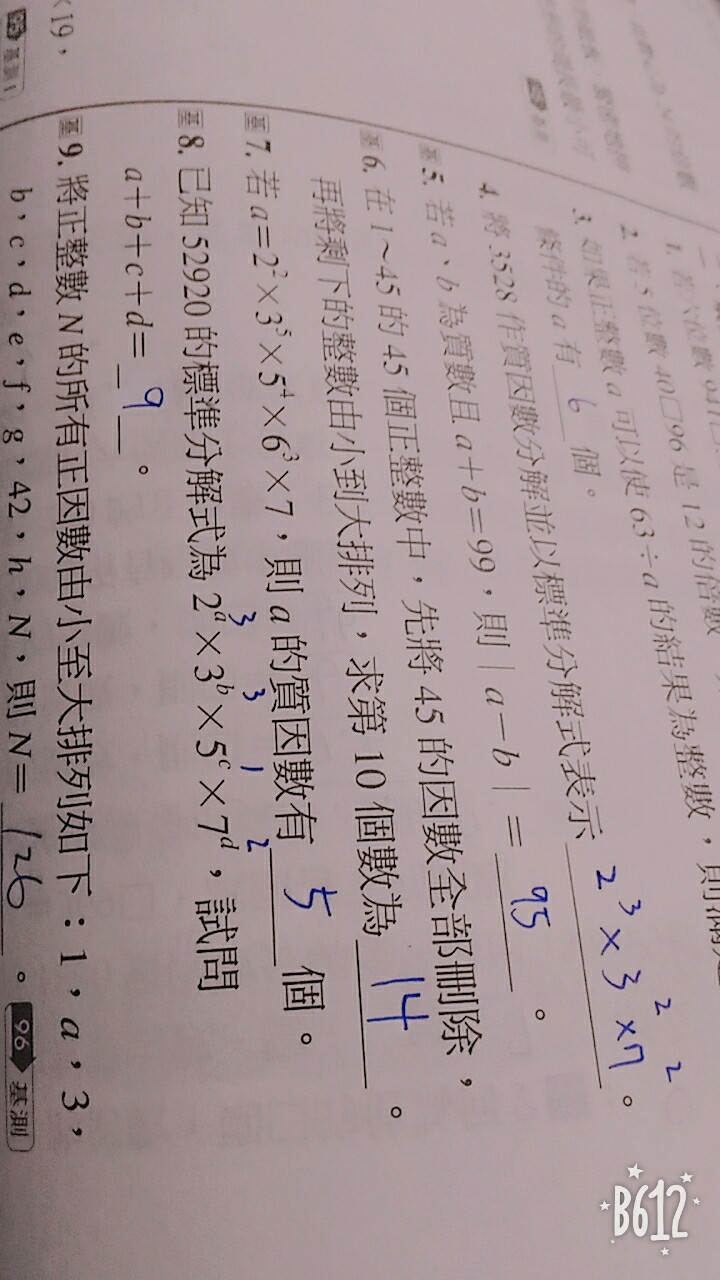 1. 若六位數
2. 若5位數 40□96 是 12 的倍數
3. 如果正整數 a 可以使 63÷a 的結果為整數，則
條件的 a 有 6 個。
4. 將 3528 作質因數分解並以標準分解式表示 2³×3²×7² 。
5. 若 a、b 為質數且 a+b=99，則│a−b│= 95 。
6. 在 1~45 的 45 個正整數中，先將 45 的因數全部刪除，
再將剩下的整數由小到大排列，求第 10 個數為 14 。
7. 若 a=2²×3⁵×5⁴×6³×7，則 a 的質因數有 5 個。
3 3 1 2
8. 已知 52920 的標準分解式為 2ᵃ×3ᵇ×5ᶜ×7ᵈ，試問
a+b+c+d= 9 。
9. 將正整數 N 的所有正因數由小至大排列如下：1，a，3，
b，c，d，e，f，g，42，h，N，則 N= 126 。 96 基測
19，
B612